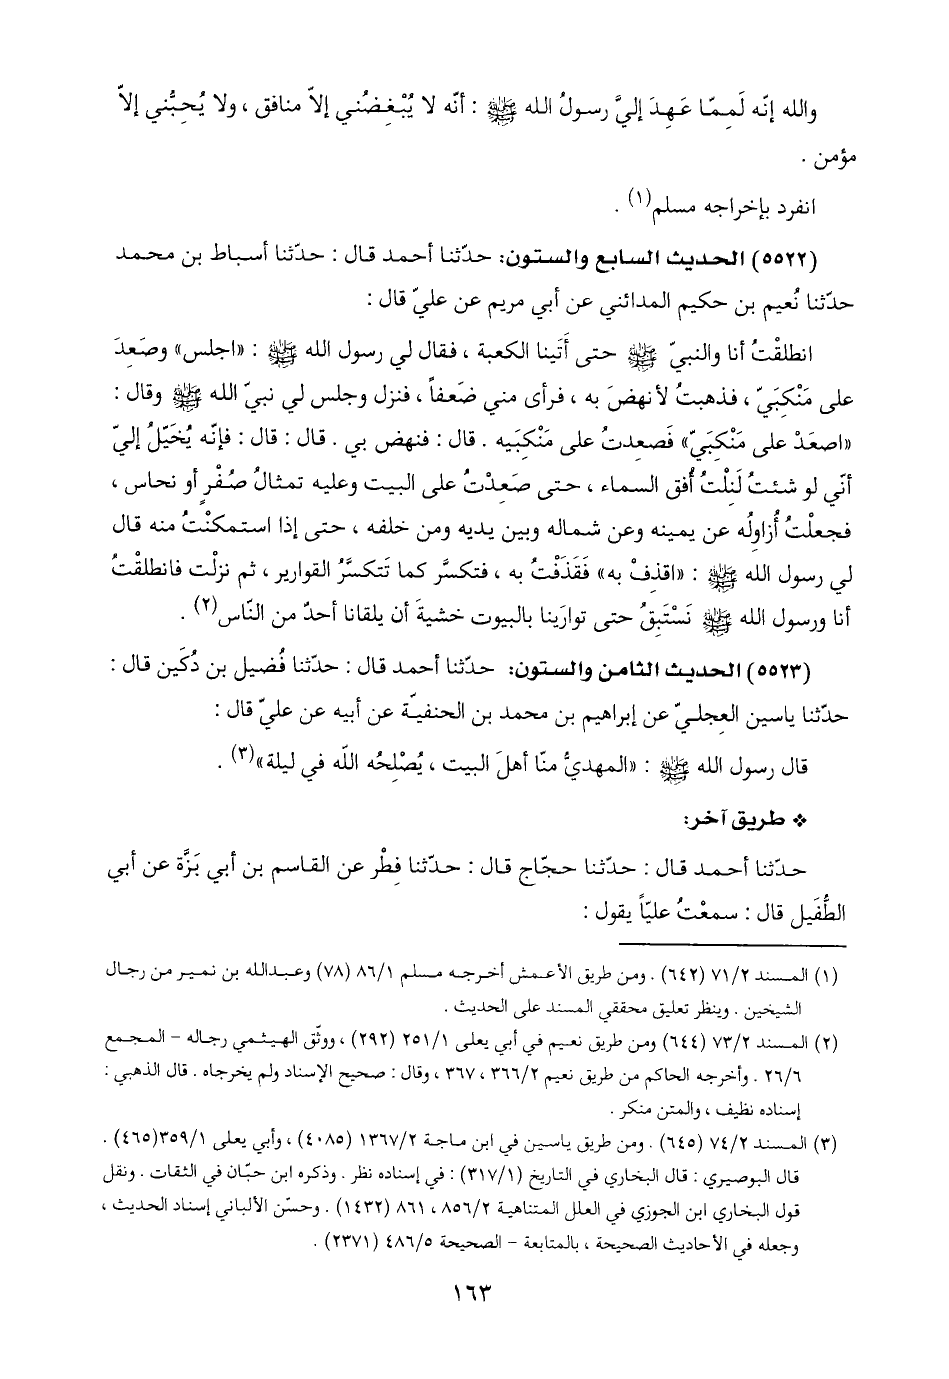 والله إنّه لَمِمّا عَهِدَ إليَّ رسولُ الله ﷺ : أنّه لا يُبْغِضُني إلاّ منافق ، ولا يُحِبُّني إلاّ
مؤمن .
انفرد بإخراجه مسلم(١) .
(٥٥٢٢) الحديث السابع والستون: حدّثنا أحمد قال : حدّثنا أسباط بن محمد
حدّثنا نُعيم بن حكيم المدائني عن أبي مريم عن عليّ قال :
انطلقْتُ أنا والنبيّ ﷺ حتى أَتَينا الكعبة ، فقال لي رسول الله ﷺ : «اجلس» وصَعِدَ
على مَنْكِبَيّ ، فذهبتُ لأنهضَ به ، فرأى مني ضَعفاً ، فنزل وجلس لي نبيّ الله ﷺ وقال :
«اصعَدْ على مَنْكِبَيّ» فَصعِدتُ على مَنْكِبَيه . قال : فنهض بي . قال : قال : فإنّه يُخَيّلُ إليّ
أنّي لو شئتُ لَنِلْتُ أُفق السماء ، حتى صَعِدْتُ على البيت وعليه تمثالُ صُفْرٍ أو نحاس ،
فجعلْتُ أُزاوِلُه عن يمينه وعن شماله وبين يديه ومن خلفه ، حتى إذا استمكنْتُ منه قال
لي رسول الله ﷺ : «اقذفْ به» فَقَذَفْتُ به ، فتكسَّر كما تَتكسَّرُ القوارير ، ثم نزلْت فانطلقْتُ
أنا ورسول الله ﷺ نَسْتَبِقُ حتى توارَينا بالبيوت خشيةَ أن يلقانا أحدٌ من النّاس(٢) .
(٥٥٢٣) الحديث الثامن والستون: حدّثنا أحمد قال : حدّثنا فُضيل بن دُكَين قال :
حدّثنا ياسين العِجليّ عن إبراهيم بن محمد بن الحنفيّة عن أبيه عن عليّ قال :
قال رسول الله ﷺ : «المهديُّ منّا أهلَ البيت ، يُصْلِحُه اللّه في ليلة»(٣) .
❖ طريق آخر:
حدّثنا أحمد قال : حدّثنا حجّاج قال : حدّثنا فِطْر عن القاسم بن أبي بَزَّة عن أبي
الطُّفَيل قال : سمعْتُ عليّاً يقول :
(١) المسند ٧١/٢ (٦٤٢) . ومن طريق الأعمش أخرجه مسلم ٨٦/١ (٧٨) وعبدالله بن نمير من رجال
الشيخين . وينظر تعليق محققي المسند على الحديث .
(٢) المسند ٧٣/٢ (٦٤٤) ومن طريق نعيم في أبي يعلى ٢٥١/١ (٢٩٢) ، ووثّق الهيثمي رجاله - المجمع
٢٦/٦ . وأخرجه الحاكم من طريق نعيم ٣٦٦/٢ ، ٣٦٧ ، وقال : صحيح الإسناد ولم يخرجاه . قال الذهبي :
إسناده نظيف ، والمتن منكر .
(٣) المسند ٧٤/٢ (٦٤٥) . ومن طريق ياسين في ابن ماجة ١٣٦٧/٢ (٤٠٨٥) ، وأبي يعلى ٣٥٩/١(٤٦٥) .
قال البوصيري : قال البخاري في التاريخ (٣١٧/١) : في إسناده نظر . وذكره ابن حبّان في الثقات . ونقل
قول البخاري ابن الجوزي في العلل المتناهية ٨٥٦/٢ ، ٨٦١ (١٤٣٢) . وحسّن الألباني إسناد الحديث ،
وجعله في الأحاديث الصحيحة ، بالمتابعة - الصحيحة ٤٨٦/٥ (٢٣٧١) .
١٦٣